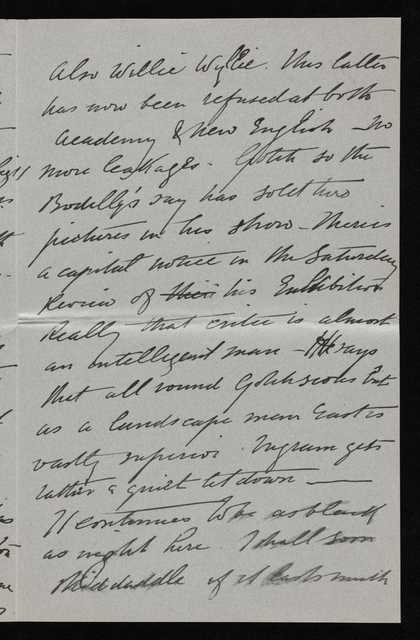 also Willie Wyllie. This latter
has now been refused at both
Academy & New English – no
more leakages. Gotch so the
Bodilly's say has sold two
pictures in his show – There is
a capital notice in the Saturday
Review of his Exhibition
Really that critic is almost
an intelligent man – He says
that all round Gotch scores but
as a landscape man East is
vastly superior. Ingram gets
rather a quiet let down —
It continues to be as black
as night here. I shall soon
skidaddle if it lasts much